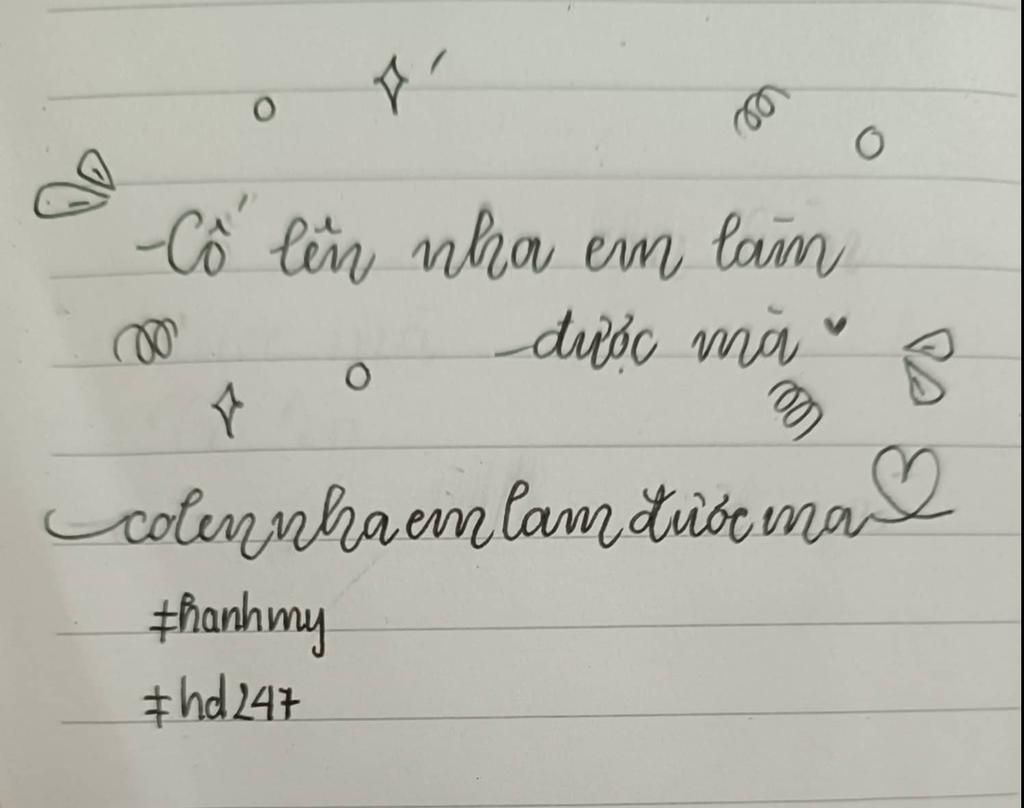 -Cố lên nha em làm
được mà
colennhaemlamđượcma
#hanhmy
#hd247